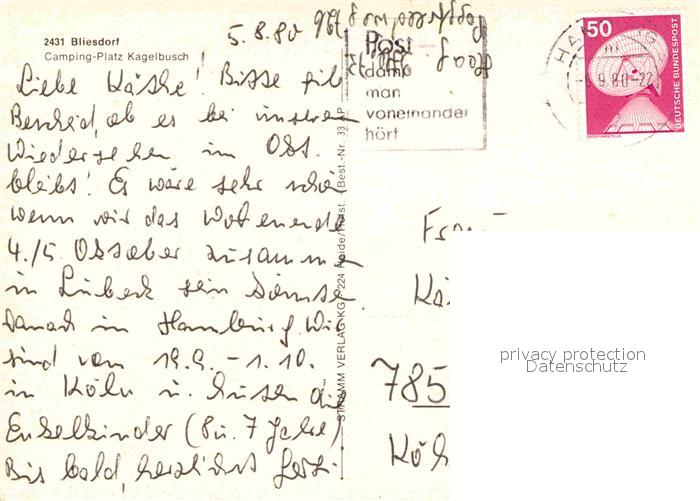 2431 Bliesdorf
Camping-Platz Kagelbusch
5.8.80
Liebe Käthe! Bitte gib
Bescheid, ob es bei unserem
Wiedersehen im Okt.
bleibt! Es wäre sehr schön
wenn wir das Wochenende
4./5. Oktober zusammen
in Lübeck sein könnten.
Danach in Hamburg. Wir
sind vom 19.9. - 1.10.
in Köln u. hüten die
Enkelkinder (8 u. 7 Jahre)
Bis bald, herzlichst
Post
damit
man
voneinander
hört
50
DEUTSCHE BUNDESPOST
STRAMM VERLAG KG, 224 Heide/Holst. (Best.-Nr. 33
Frau
785
Köln
privacy protection
Datenschutz